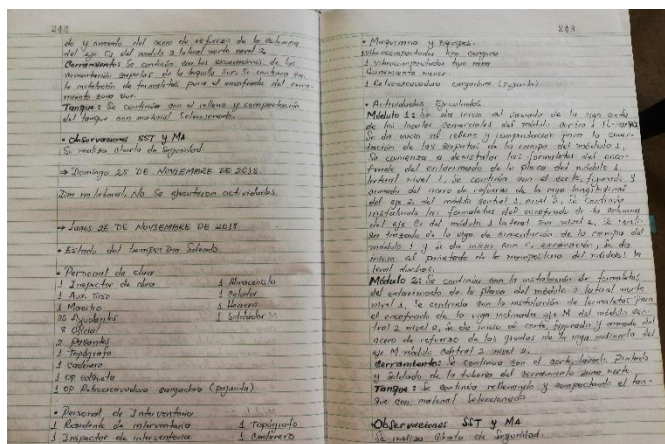 242
do y armado del acero de refuerzo de la columna
del eje C1 del modulo 2 lateral norte nivel 2.
Cerramiento: Se continúa con las excavaciones de la
cimentación zapatas de la bogota Sur. Se continua con
la instalación de formaletas para el encofrado del cerra-
miento zona sur.
Tanque: Se continúa con el relleno y compactación
del tanque con material Seleccionado.
• Observaciones SST y MA
Se realiza charla de Seguridad
→ Domingo 25 DE NOVIEMBRE DE 2018
Dia no laboral, No Se ejecutaron actividades.
→ Lunes 26 DE NOVIEMBRE DE 2018.
• Estado del tiempo: Dia Soleado
• Personal de obra
1 Inspector de obra 1 Almacenista
1 Aux. Siso
1 Maestro 1 Herrero
35 Ayudantes 1 Soldador
8 Oficial
2 Pasantes
1 Topógrafo
1 Cadenero
1 OP volqueta
1 OP Retroexcavadora cargadora (pajarita)
• Personal de Interventoria
1 Residente de interventoria 1 Topógrafo
1 Inspector de interventoria 1 Cadenero
243
• Maquinaria y Equipos.
1 Vibrocompactador tipo canguro
1 Vibrocompactador tipo rana
Herramienta menor
1 Retroexcavadora cargadora (Pajarita)
• Actividades Ejecutadas
Módulo 1: Se da inicio al vaciado de la viga cinta
de los locales comerciales del módulo centro 1
Se da inicio al relleno y compactación para la cimen-
tación de las zapatas de la rampa del módulo 1,
Se comienza a desinstalar las formaletas del enco-
frado del enterramado de la placa del módulo 1
lateral nivel 1, Se continúa con el corte, figurado y
armado del acero de refuerzo de la viga longitudinal
del eje 2 del módulo central 1, nivel 2, Se continúa
instalando las formaletas del encofrado de la columna
del eje C1 del módulo 1 lateral sur nivel 2, Se reali-
za trazado de la viga de cimentación de la rampa del
módulo 1 y se da inicio con su excavación, se da
inicio al pañetado de la mampostería del módulo 1 la-
teral duchas.
Módulo 2: Se continúa con la instalación de formaletas
del enterramado de la placa del módulo 2 lateral norte
nivel 1, Se continúa con la instalación de formaletas para
el encofrado de la viga inclinada eje M del módulo cen-
tral 2 nivel 2, Se da inicio al corte, figurado y armado del
acero de refuerzo de las gradas de la viga inclinada del
eje M módulo central 2 nivel 2.
Cerramiento: Se continúa con el corte, lavado, Pintado
y Soldado de la tuberia del cerramiento zona norte.
Tanque: Se continúa rellenando y compactando el tan-
que con material Seleccionado
• Observaciones SST y MA
Se realiza charla de Seguridad.